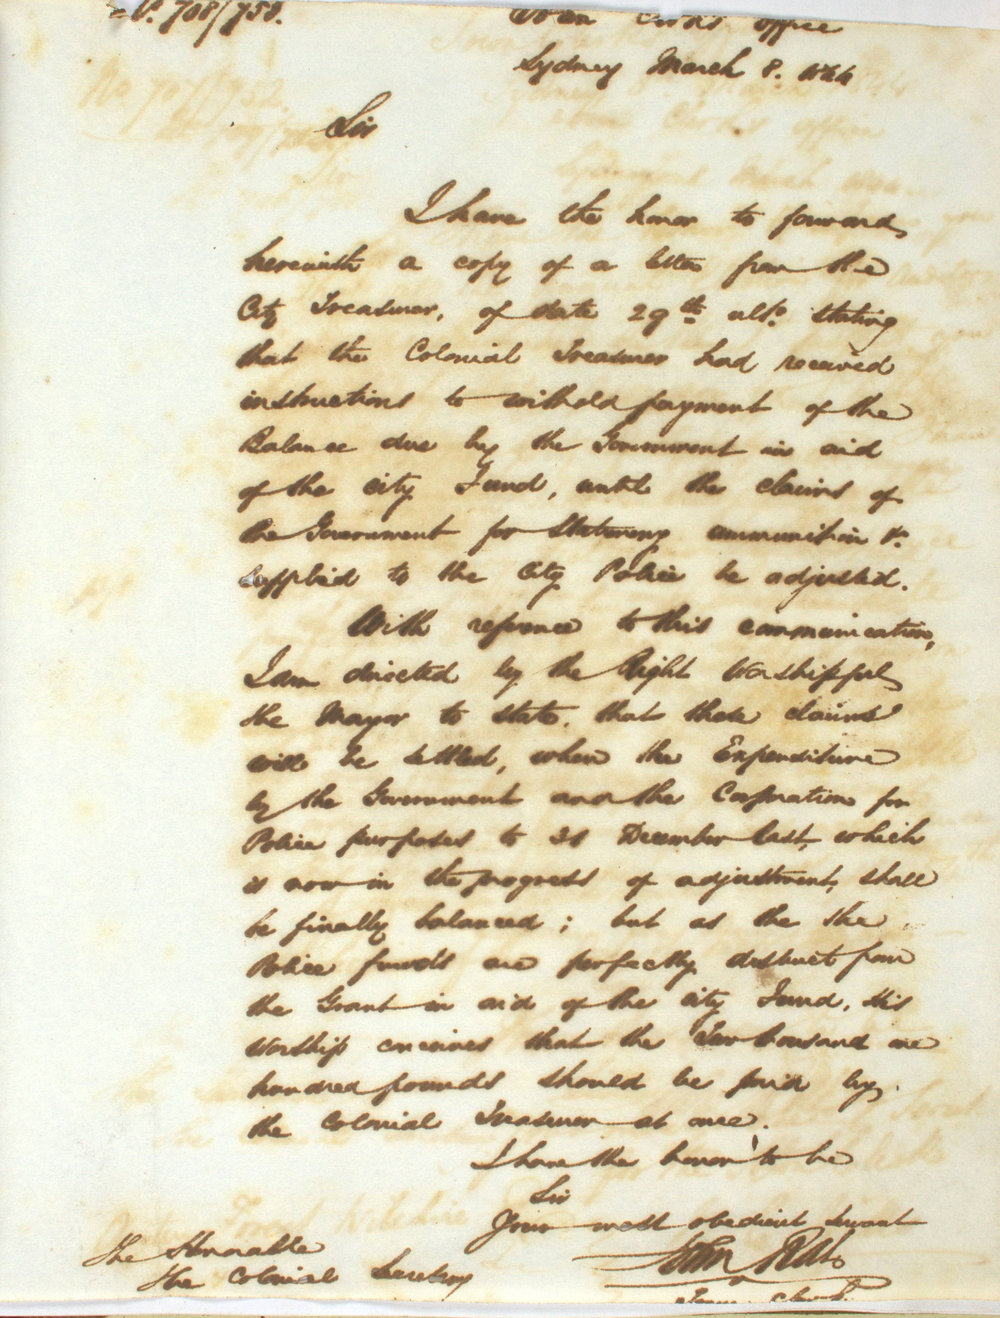 No. 708/758.
Town Clerk's office
Sydney March 8. 1844
Sir
I have the honor to forward,
herewith a copy of a letter from the
City Treasurer, of date 29th ulto. stating
that the Colonial Treasurer had received
instructions to withold payment of the
Balance due by the Government in aid
of the City Fund, until the claims of
the Government for Stationery ammunition &c
supplied to the City Police be adjusted.
With reference to this communication,
I am directed by the Right Worshipful
the Mayor to state, that these claims
will be settled, when the Expenditure
by the Government and the Corporation for
Police purposes to 31 December last, which
is now in the progress of adjustment, shall
be finally balanced; but as the the
Police funds are perfectly distinct from
the Grant in aid of the City Fund, His
Worship conceives that the thousand one
hundred pounds should be paid by
the Colonial Treasurer at once.
I have the honor to be
Sir
Your most obedient Servant
John Rae
Town Clerk
The Honorable
The Colonial Secretary